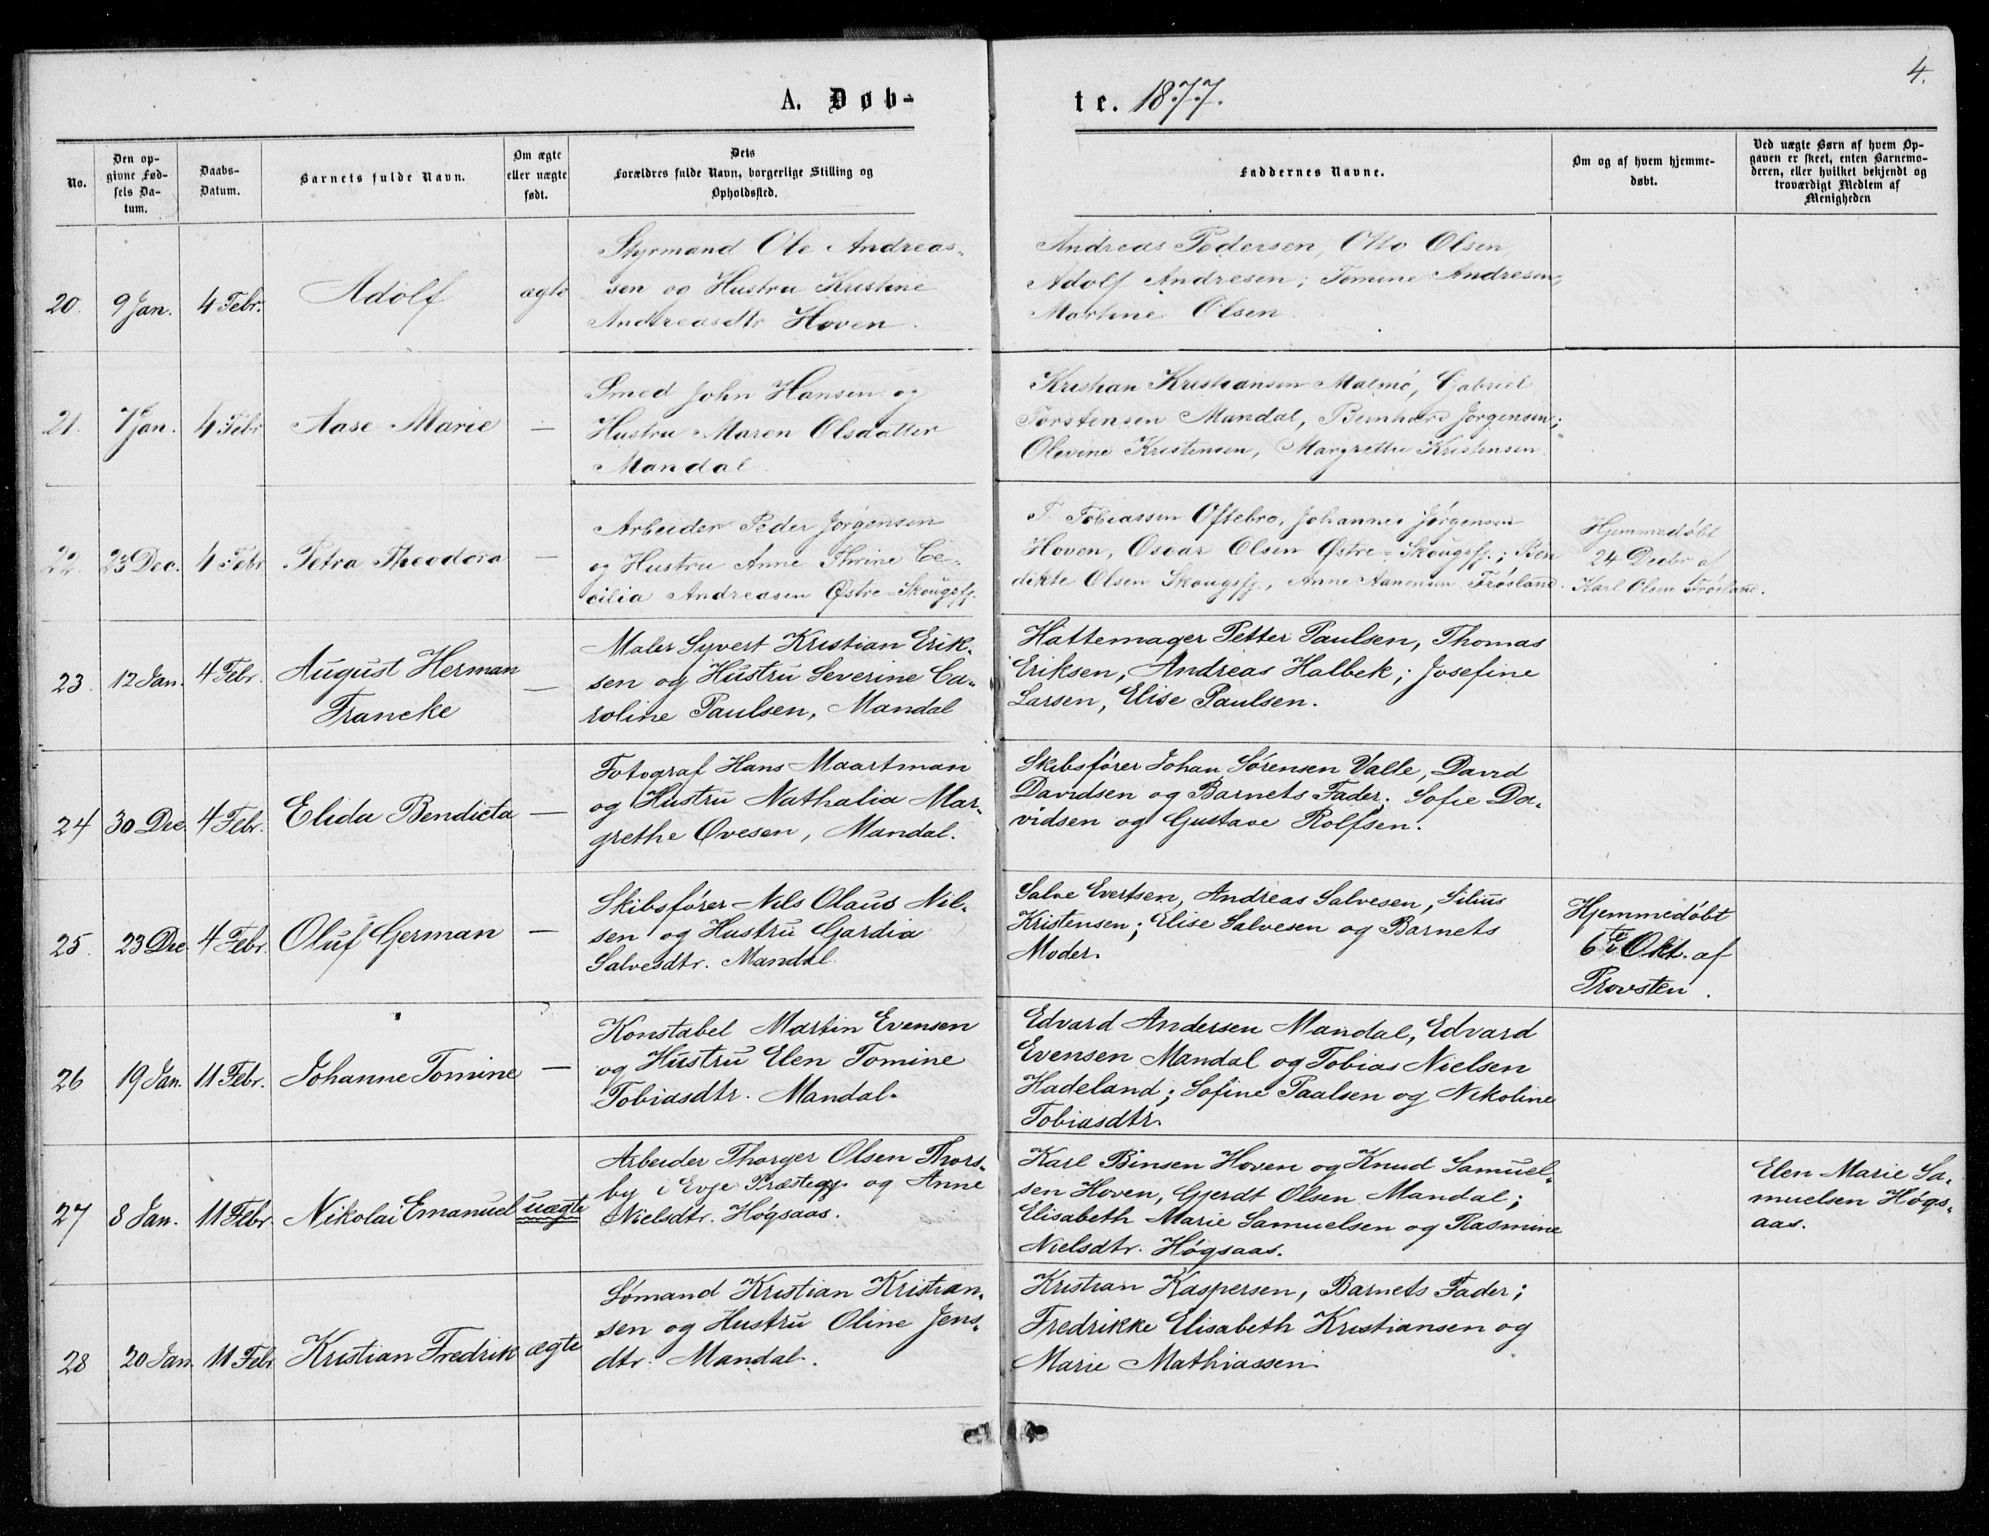 4.
A. Døb-
te. 1877.
No.
Den op-
givne Fød-
sels Da-
tum.
Daabs-
Datum.
Barnets fulde Navn.
Om ægte
eller uægte
født.
Dets
Forældres fulde Navn, borgerlige Stilling og
Opholdssted.
Faddernes Navne.
Om og af hvem hjemme-
døbt.
Ved uægte Børn af hvem Op-
gaven er skeet, enten Barnemo-
deren, eller hvilket bekjendt og
troværdigt Medlem af
Menigheden
20. 9 Jan. 4 Febr. Adolf ægte
Styrmand Ole Andreas-
sen og Hustru Kristine
Andreasdtr Hoven.
Andreas Pedersen, Otto Olsen,
Adolf Andresen; Tomine Andresen,
Martine Olsen.
21. 7 Jan. 4 Febr Aase Marie —
Smed John Hansen og
Hustru Maren Olsdatter
Mandal.
Kristian Kristiansen Malmø, Gabriel
Torstensen Mandal, Bernhard Jørgensen;
Olevine Kristensen, Margrethe Kristensen.
22. 23 Dec. 4 Febr Petra Theodora —
Arbeider Peder Jørgensen
og Hustru Anne Thrine Ce-
cilia Andreasen Østre-Skougsfj.
T. Tobiassen Oftebro, Johannes Jørgensen
Hoven, Oscar Olsen Østre-Skougsfj.; Ben
dikte Olsen Skougsfj., Anne Aanensen Frøsland.
Hjemmedøbt
24 Decbr af
Karl Olsen Frøsland.
23. 12 Jan. 4 Febr. August Herman
Francke —
Maler Syvert Kristian Erik-
sen og Hustru Severine Ca-
roline Paulsen, Mandal
Hattemager Petter Paulsen, Thomas
Eriksen, Andreas Halbek; Josefine
Larsen, Elise Paulsen.
24 30 Dec. 4 Febr. Elida Bendicta —
Fotograf Hans Maartman
og Hustru Nathalia Mar-
grethe Ovesen, Mandal.
Skibsfører Johan Sørensen Valle, David
Davidsen og Barnets Fader; Sofie Da-
vidsen og Gustave Rolfsen.
25. 23 Dec 4 Febr. Oluf German —
Skibsfører Nils Olaus Nil-
sen og Hustru Gardia
Salvesdtr. Mandal.
Salve Evertsen, Andreas Salvesen, Silius
Kristensen; Elise Salvesen og Barnets
Moder.
Hjemmedøbt
6te Okt. af
Provsten.
26 19 Jan. 11 Febr. Johanne Tomine —
Konstabel Martin Evensen
og Hustru Elen Tomine
Tobiasdtr. Mandal.
Edvard Andersen Mandal, Edvard
Evensen Mandal og Tobias Nielsen
Hadeland; Sofine Paalsen og Nikoline
Tobiasdtr.
27 8 Jan. 11 Febr. Nikolai Emanuel uægte
Arbeider Thorger Olsen Thors-
by i Evje Præstegj. og Anne
Nielsdtr. Høgsaas.
Karl Binsen Hoven og Knud Samuel-
sen Hoven, Gjerdt Olsen Mandal;
Elisabeth Marie Samuelsen og Rasmine
Nielsdtr. Høgsaas.
Elen Marie Sa-
muelsen Høgs-
aas.
28 20 Jan. 11 Febr Kristian Fredrik ægte
Sømand Kristian Kristian-
sen og Hustru Oline Jens-
dtr. Mandal.
Kristian Kaspersen, Barnets Fader;
Fredrikke Elisabeth Kristiansen og
Marie Mathiassen.